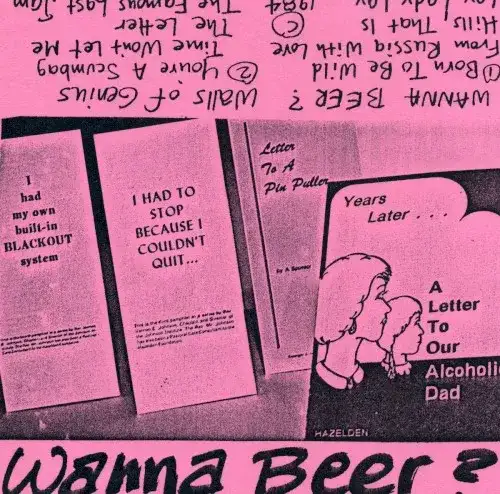 WANNA BEER?
① Born To Be Wild
From Russia With Love
Hills That Is
Lay Lady Lay
Walls of Genius
② Youre A Scumbag
Time Wont Let Me
The Letter
The Famous Last Jam
© 1984
I
had
my own
built-in
BLACKOUT
system
I HAD TO
STOP
BECAUSE I
COULDN'T
QUIT...
Letter
To A
Pin Puller
by A Sponsor
Years
Later . . .
A
Letter
To
Our
Alcoholic
Dad
HAZELDEN
Wanna Beer?